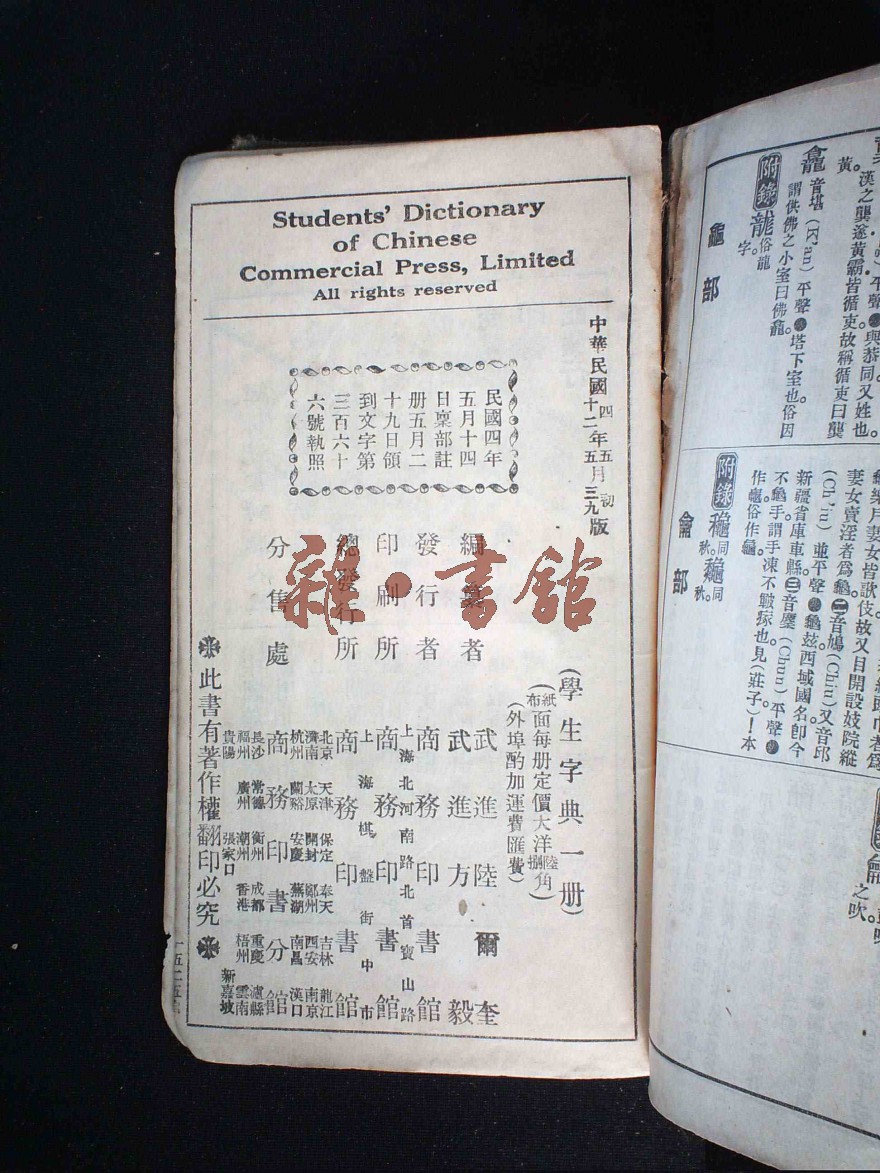 Students' Dictionary
of Chinese
Commercial Press, Limited
All rights reserved
中華民國四年五月初版
十二年五月三九版
民國四年
五月十四
日稟部註
册五月二
十九日領
到文字第
三百六十
六號執照
(學生字典一册)
(紙布面每册定價大洋陸捌角)
(外埠酌加運費匯費)
編纂者 武進陸爾奎
武進方毅
發行者 商務印書館
印刷所 上海北河南路北首寶山路
商務印書館
總發行所 上海棋盤街中市
商務印書館
分售處 北京 天津 保定 奉天 吉林 龍江
濟南 太原 開封 鄭州 西安 南京
杭州 蘭谿 安慶 蕪湖 南昌 漢口
商務印書分館
長沙 常德 衡州 成都 重慶 瀘縣
福州 廣州 潮州 香港 梧州 雲南
貴陽 張家口 新嘉坡
此書有著作權翻印必究
雜·書館
漢之龔遂黃霸皆循吏故稱循吏曰龔
黃。
龕 音堪(K'an)平聲●塔下室也俗因
謂供佛之小室曰佛龕。
附錄 龍 俗龍
字。
龜部
妻女賣淫者爲龜㊁音鳩(Chiu)又音邱
(Ch'iu)並平聲●龜玆西域國名卽今
新疆省庫車縣㊂音麏(Chun)平聲●
不龜手謂手凍不皸瘃也見(莊子)!本
作龜俗作龜。
附錄 龝 同秋。 龝 同秋。
龠部
之吹。